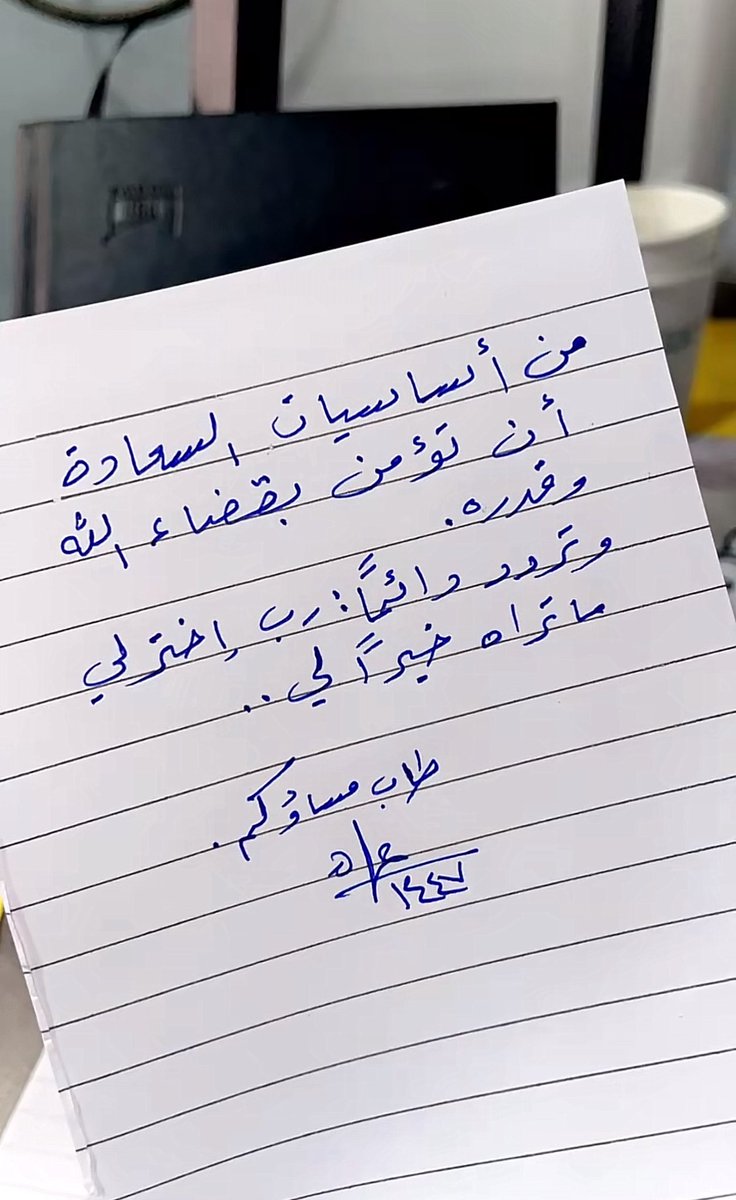 من أساسيات السعادة
أن تؤمن بقضاء الله
وقدره.
وتردد دائمًا: رب إختر لي
ما تراه خيرًا لي..
طاب مساؤكم.
١٤٤٧